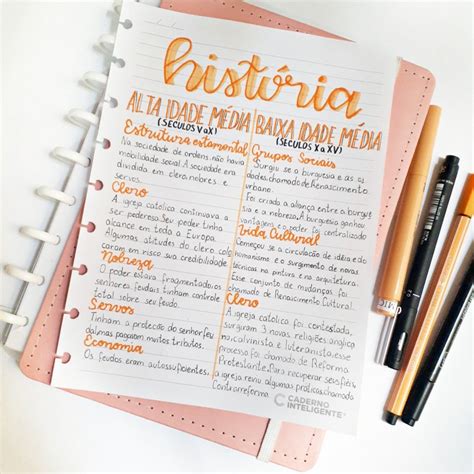 história
ALTA IDADE MÉDIA
(SÉCULOS V a X)
Estrutura estamental
Na sociedade de ordens não havia
mobilidade social. A sociedade era
dividida em clero, nobres e
servos.
Clero
A igreja católica continuava a
ser poderosa. Seu poder tinha
alcance em toda a Europa.
Algumas atitudes do clero colo
caram em risco sua credibilidade
Nobreza
O poder estava fragmentado, os
senhores feudais tinham controle
total sobre seu feudo.
Servos
Tinham a protecção do senhor feu
dal mas pagavam muitos tributos.
Economia
Os feudos eram autossuficientes.
BAIXA IDADE MÉDIA
(SÉCULOS X a XV)
Grupos Sociais
Surgiu se a burguesia e as ci
dades chamado de Renascimento
urbano.
Foi criado a aliança entre a burgue
sia e a nobreza. A burguesia ganhou
vantagens e o poder foi centralizado
Vida Cultural
Começou se a circulação de idéia do
humanismo e o surgimento de novas
técnicas na pintura e na arquitetura.
Esse conjunto de mudanças foi
chamado de Renascimento Cultural.
Clero
A igreja católica foi contestada,
surgiram 3 novas religiões: anglica
no, calvinista e luteranista, esse
processo foi chamado de Reforma
Protestante. Para recuperar seus fiéis,
a igreja reviu algumas práticas, chamado
Contrarreforma.
CADERNO
INTELIGENTE